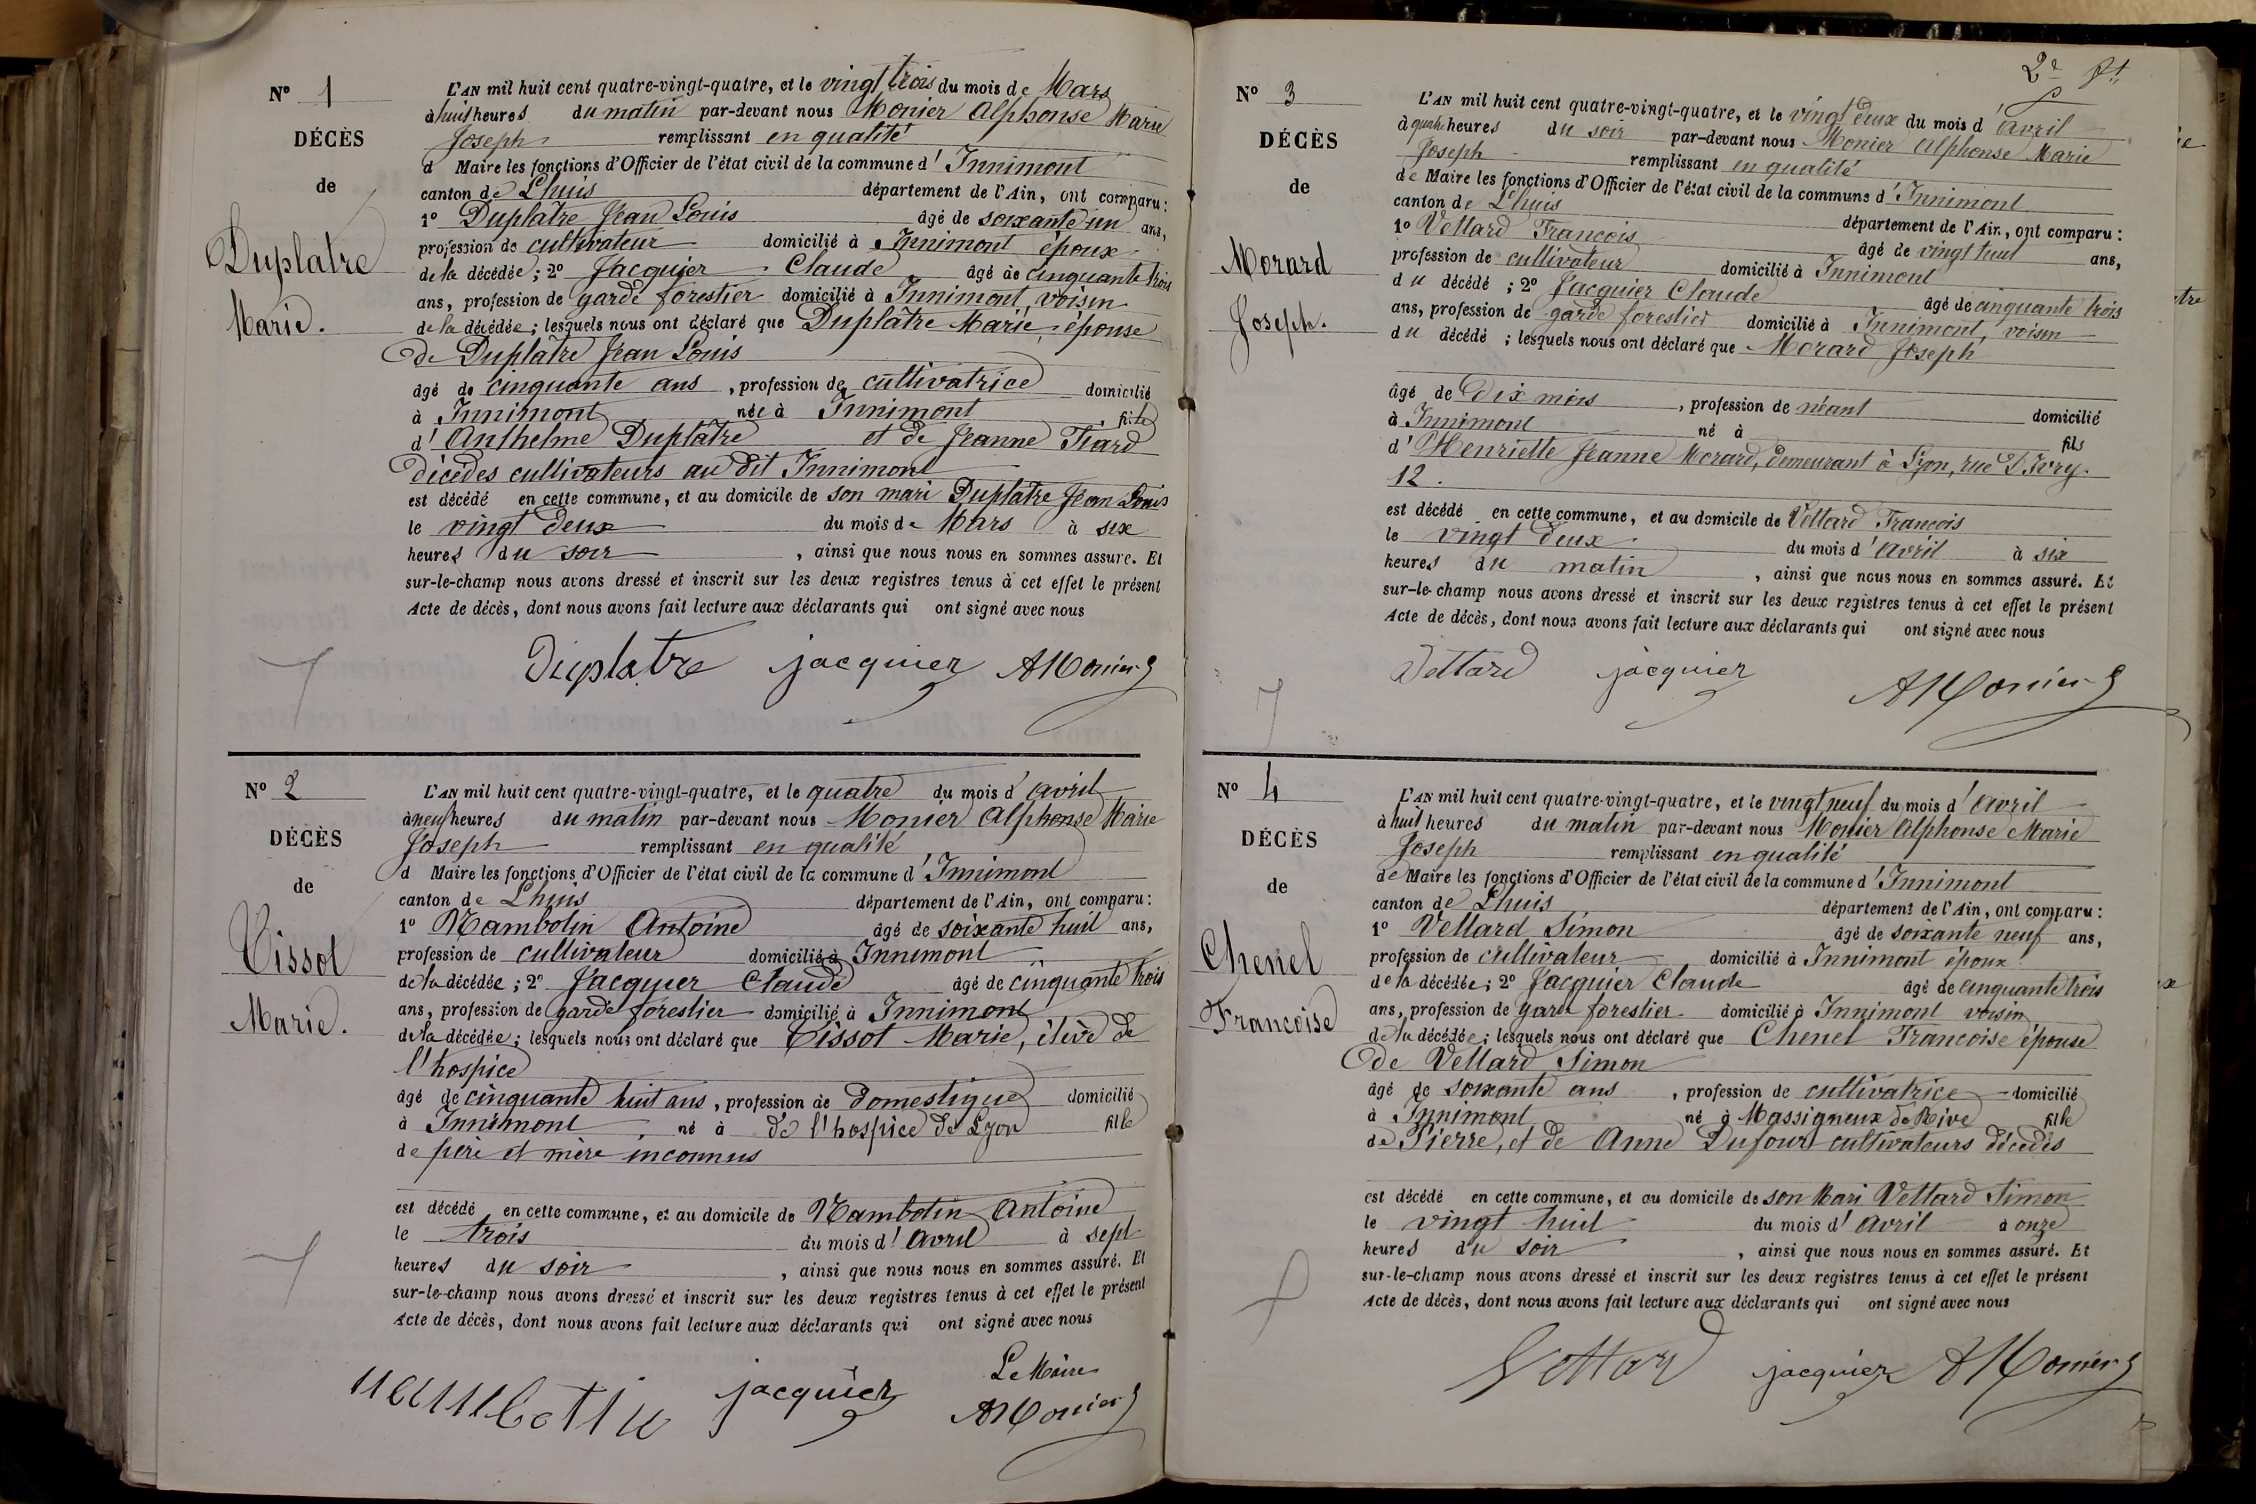 Nº 1
DÉCÈS
de
Duplatre
Marie.
L'AN mil huit cent quatre-vingt-quatre, et le vingt trois du mois de Mars
à huit heures du matin par-devant nous Monier Alphonse Marie
Joseph remplissant en qualité
d Maire les fonctions d'Officier de l'état civil de la commune d'Innimont
canton de Lhuis département de l'Ain, ont comparu :
1º Duplâtre Jean Louis âgé de soixante un ans,
profession de cultivateur domicilié à Innimont époux
de la décédée ; 2º Jacquier Claude âgé de cinquante trois
ans, profession de garde forestier domicilié à Innimont, voisin
de la décédée ; lesquels nous ont déclaré que Duplâtre Marie, épouse
de Duplâtre Jean Louis
âgé de cinquante ans, profession de cultivatrice domicilié
à Innimont née à Innimont fille
d'Anthelme Duplâtre et de Jeanne Tiard
décédés cultivateurs au dit Innimont
est décédé en cette commune, et au domicile de son mari Duplatre Jean Louis
le vingt deux du mois de Mars à six
heures du soir, ainsi que nous nous en sommes assuré. Et
sur-le-champ nous avons dressé et inscrit sur les deux registres tenus à cet effet le présent
Acte de décès, dont nous avons fait lecture aux déclarants qui ont signé avec nous
Duplatre jacquier AMonier
Nº 2
DÉCÈS
de
Tissot
Marie.
L'AN mil huit cent quatre-vingt-quatre, et le quatre du mois d'avril
à neuf heures du matin par-devant nous Monier Alphonse Marie
Joseph remplissant en qualité
d Maire les fonctions d'Officier de l'état civil de la commune d'Innimont
canton de Lhuis département de l'Ain, ont comparu :
1º Nambotin Antoine âgé de soixante huit ans,
profession de cultivateur domicilié à Innimont
de la décédée ; 2º Jacquier Claude âgé de cinquante trois
ans, profession de garde forestier domicilié à Innimont
de la décédée ; lesquels nous ont déclaré que Tissot Marie, élève de
l'hospice
âgé de cinquante huit ans, profession de domestique domicilié
à Innimont, né à de l'hospice de Lyon fille
de père et mère inconnus
est décédé en cette commune, et au domicile de Nambotin Antoine
le trois du mois d'avril à sept
heures du soir, ainsi que nous nous en sommes assuré. Et
sur-le-champ nous avons dressé et inscrit sur les deux registres tenus à cet effet le présent
Acte de décès, dont nous avons fait lecture aux déclarants qui ont signé avec nous
nambotin jacquier Le Maire
AMonier
2e
Nº 3
DÉCÈS
de
Morard
Joseph.
L'AN mil huit cent quatre-vingt-quatre, et le vingt deux du mois d'avril
à quatre heures du soir par-devant nous Monier Alphonse Marie
Joseph remplissant en qualité
de Maire les fonctions d'Officier de l'état civil de la commune d'Innimont
canton de Lhuis département de l'Ain, ont comparu :
1º Vettard François âgé de vingt huit ans,
profession de cultivateur domicilié à Innimont
du décédé ; 2º Jacquier Claude âgé de cinquante trois
ans, profession de garde forestier domicilié à Innimont, voisin
du décédé ; lesquels nous ont déclaré que Morard Joseph
âgé de dix mois, profession de néant domicilié
à Innimont né à fils
d'Henriette Jeanne Morard, demeurant à Lyon, rue d'Ivry.
12.
est décédé en cette commune, et au domicile de Vettard François
le vingt deux du mois d'avril à six
heures du matin, ainsi que nous nous en sommes assuré. Et
sur-le-champ nous avons dressé et inscrit sur les deux registres tenus à cet effet le présent
Acte de décès, dont nous avons fait lecture aux déclarants qui ont signé avec nous
Vettard jacquier AMonier
Nº 4
DÉCÈS
de
Chenel
Francoise
L'AN mil huit cent quatre-vingt-quatre, et le vingt neuf du mois d'avril
à huit heures du matin par-devant nous Monier Alphonse Marie
Joseph remplissant en qualité
de Maire les fonctions d'Officier de l'état civil de la commune d'Innimont
canton de Lhuis département de l'Ain, ont comparu :
1º Vettard Simon âgé de soixante neuf ans,
profession de cultivateur domicilié à Innimont époux
de la décédée ; 2º Jacquier Claude âgé de cinquante trois
ans, profession de garde forestier domicilié à Innimont voisin
de la décédée ; lesquels nous ont déclaré que Chenel Francoise épouse
de Vettard Simon
âgé de soixante ans, profession de cultivatrice domicilié
à Innimont né à Massigneux de Rive fille
de Pierre, et de Anne Dufour cultivateurs décédés
est décédé en cette commune, et au domicile de son Mari Vettard Simon
le vingt huit du mois d'avril à onze
heures du soir, ainsi que nous nous en sommes assuré. Et
sur-le-champ nous avons dressé et inscrit sur les deux registres tenus à cet effet le présent
Acte de décès, dont nous avons fait lecture aux déclarants qui ont signé avec nous
Vettard jacquier AMonier